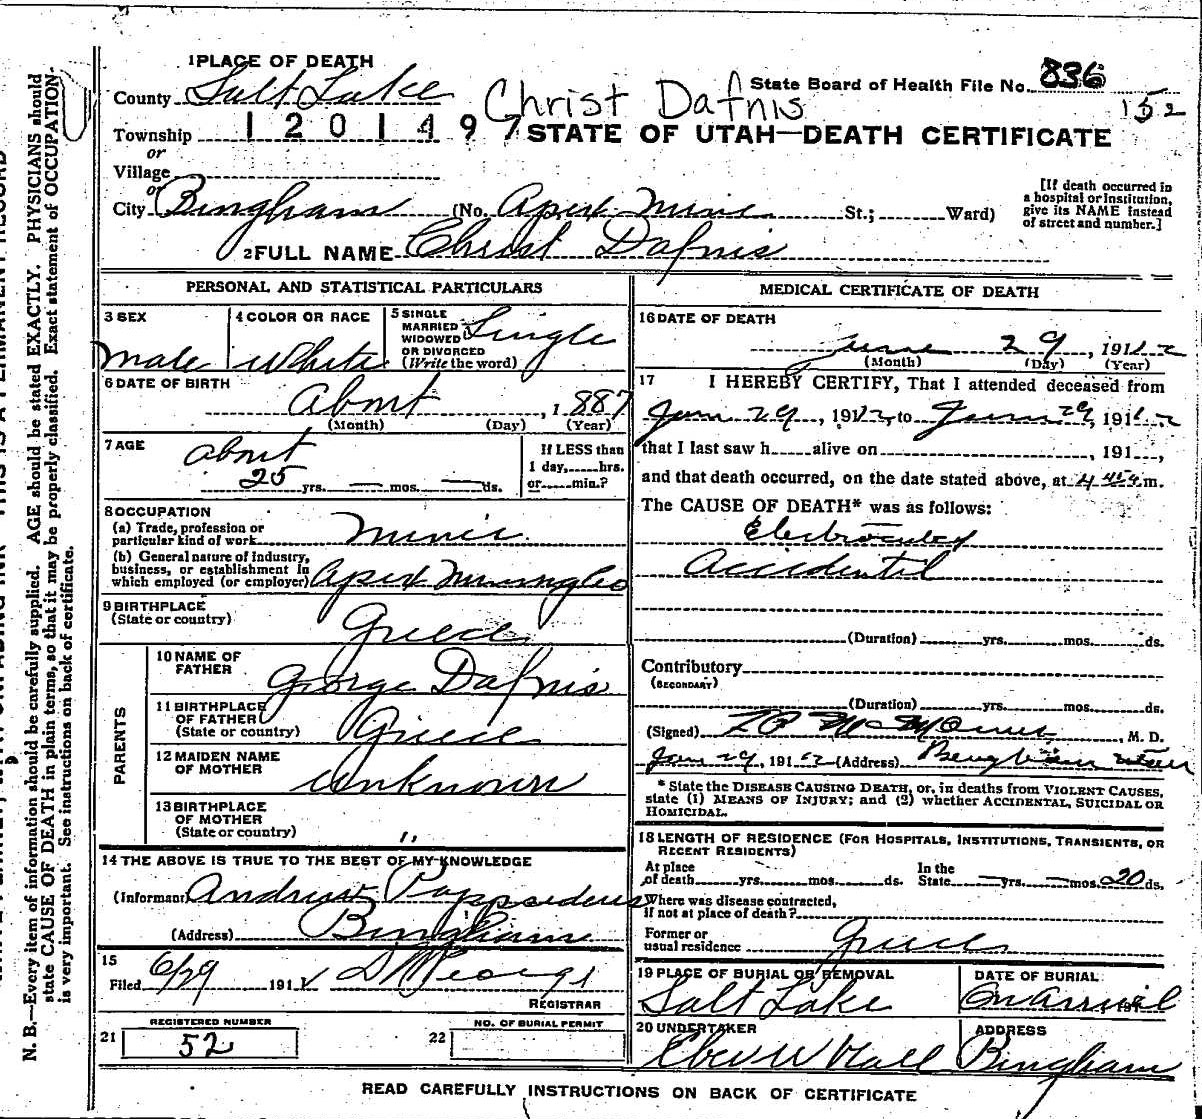 1 PLACE OF DEATH
County Salt Lake
Christ Dafnis
State Board of Health File No. 836
152
Township 1201497
STATE OF UTAH—DEATH CERTIFICATE
or
Village
or
City Bingham (No. Apex Mine St.; Ward)
[If death occurred in
a hospital or institution,
give its NAME instead
of street and number.]
2 FULL NAME Christ Dafnis
PERSONAL AND STATISTICAL PARTICULARS
3 SEX
Male
4 COLOR OR RACE
White
5 SINGLE
MARRIED
WIDOWED
OR DIVORCED
(Write the word)
Single
6 DATE OF BIRTH
About, 1887
(Month) (Day) (Year)
7 AGE
about
25 yrs. — mos. — ds.
If LESS than
1 day, hrs.
or min.?
8 OCCUPATION
(a) Trade, profession or
particular kind of work Miner
(b) General nature of industry,
business, or establishment in
which employed (or employer) Apex Mining Co
9 BIRTHPLACE
(State or country)
Greece
PARENTS
10 NAME OF
FATHER
George Dafnis
11 BIRTHPLACE
OF FATHER
(State or country)
Greece
12 MAIDEN NAME
OF MOTHER
Unknown
13 BIRTHPLACE
OF MOTHER
(State or country)
"
14 THE ABOVE IS TRUE TO THE BEST OF MY KNOWLEDGE
(Informant Andrew
(Address) Bingham
15
Filed 6/29 191
REGISTRAR
21
REGISTERED NUMBER
52
22
NO. OF BURIAL PERMIT
MEDICAL CERTIFICATE OF DEATH
16 DATE OF DEATH
June 29, 1912
(Month) (Day) (Year)
17 I HEREBY CERTIFY, That I attended deceased from
June 29, 1912, to June 29, 1912
that I last saw h alive on , 191 ,
and that death occurred, on the date stated above, at 4 m.
The CAUSE OF DEATH* was as follows:
Electrocuted
Accidental
(Duration) yrs. mos. ds.
Contributory
(SECONDARY)
(Duration) yrs. mos. ds.
(Signed) , M. D.
June 29, 1912 (Address) Bingham Utah
* State the DISEASE CAUSING DEATH, or, in deaths from VIOLENT CAUSES,
state (1) MEANS OF INJURY; and (2) whether ACCIDENTAL, SUICIDAL OR
HOMICIDAL.
18 LENGTH OF RESIDENCE (FOR HOSPITALS, INSTITUTIONS, TRANSIENTS, OR
RECENT RESIDENTS)
At place
of death yrs. mos. ds.
In the
State — yrs. — mos. 20 ds.
Where was disease contracted,
if not at place of death?
Former or
usual residence Greece
19 PLACE OF BURIAL OR REMOVAL
Salt Lake
DATE OF BURIAL
On Arrival, 191
20 UNDERTAKER
Eber W Hall
ADDRESS
Bingham
READ CAREFULLY INSTRUCTIONS ON BACK OF CERTIFICATE
N. B.—Every item of information should be carefully supplied. AGE should be stated EXACTLY. PHYSICIANS should
state CAUSE OF DEATH in plain terms, so that it may be properly classified. Exact statement of OCCUPATION
is very important. See instructions on back of certificate.